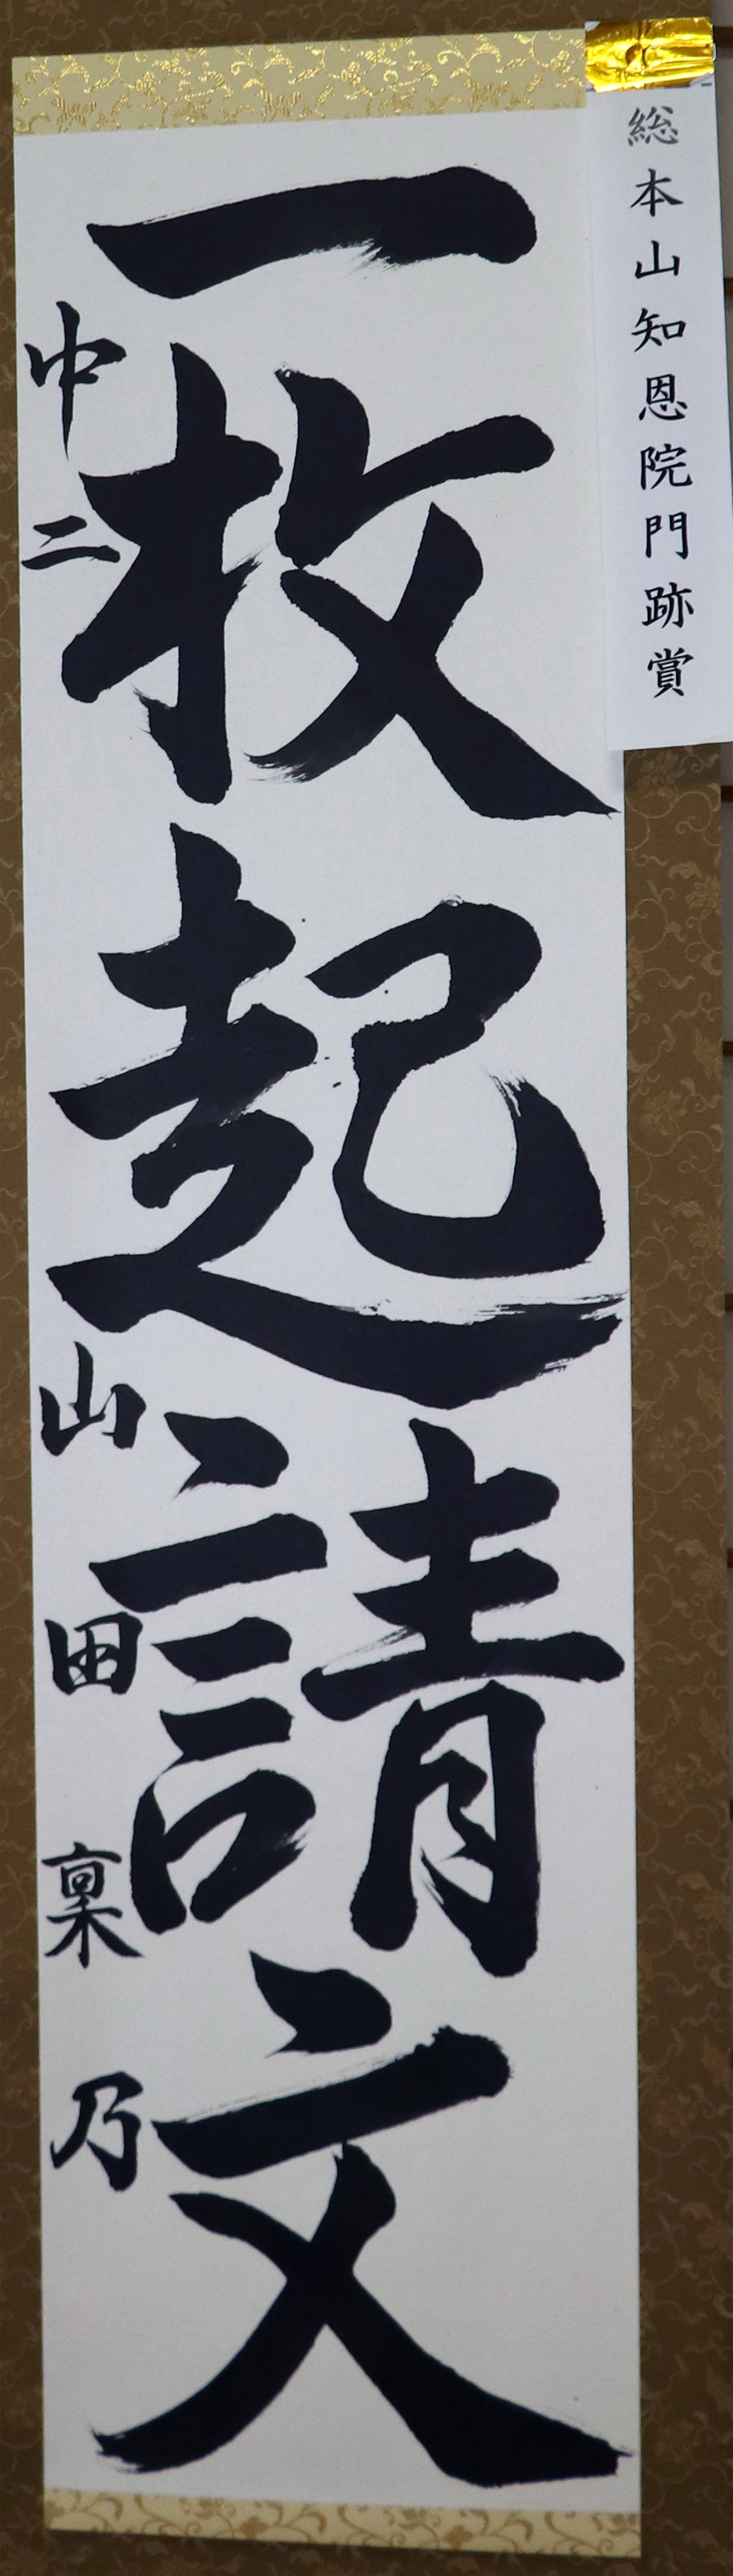 総本山知恩院門跡賞
一枚起請文
中二 山田稟乃